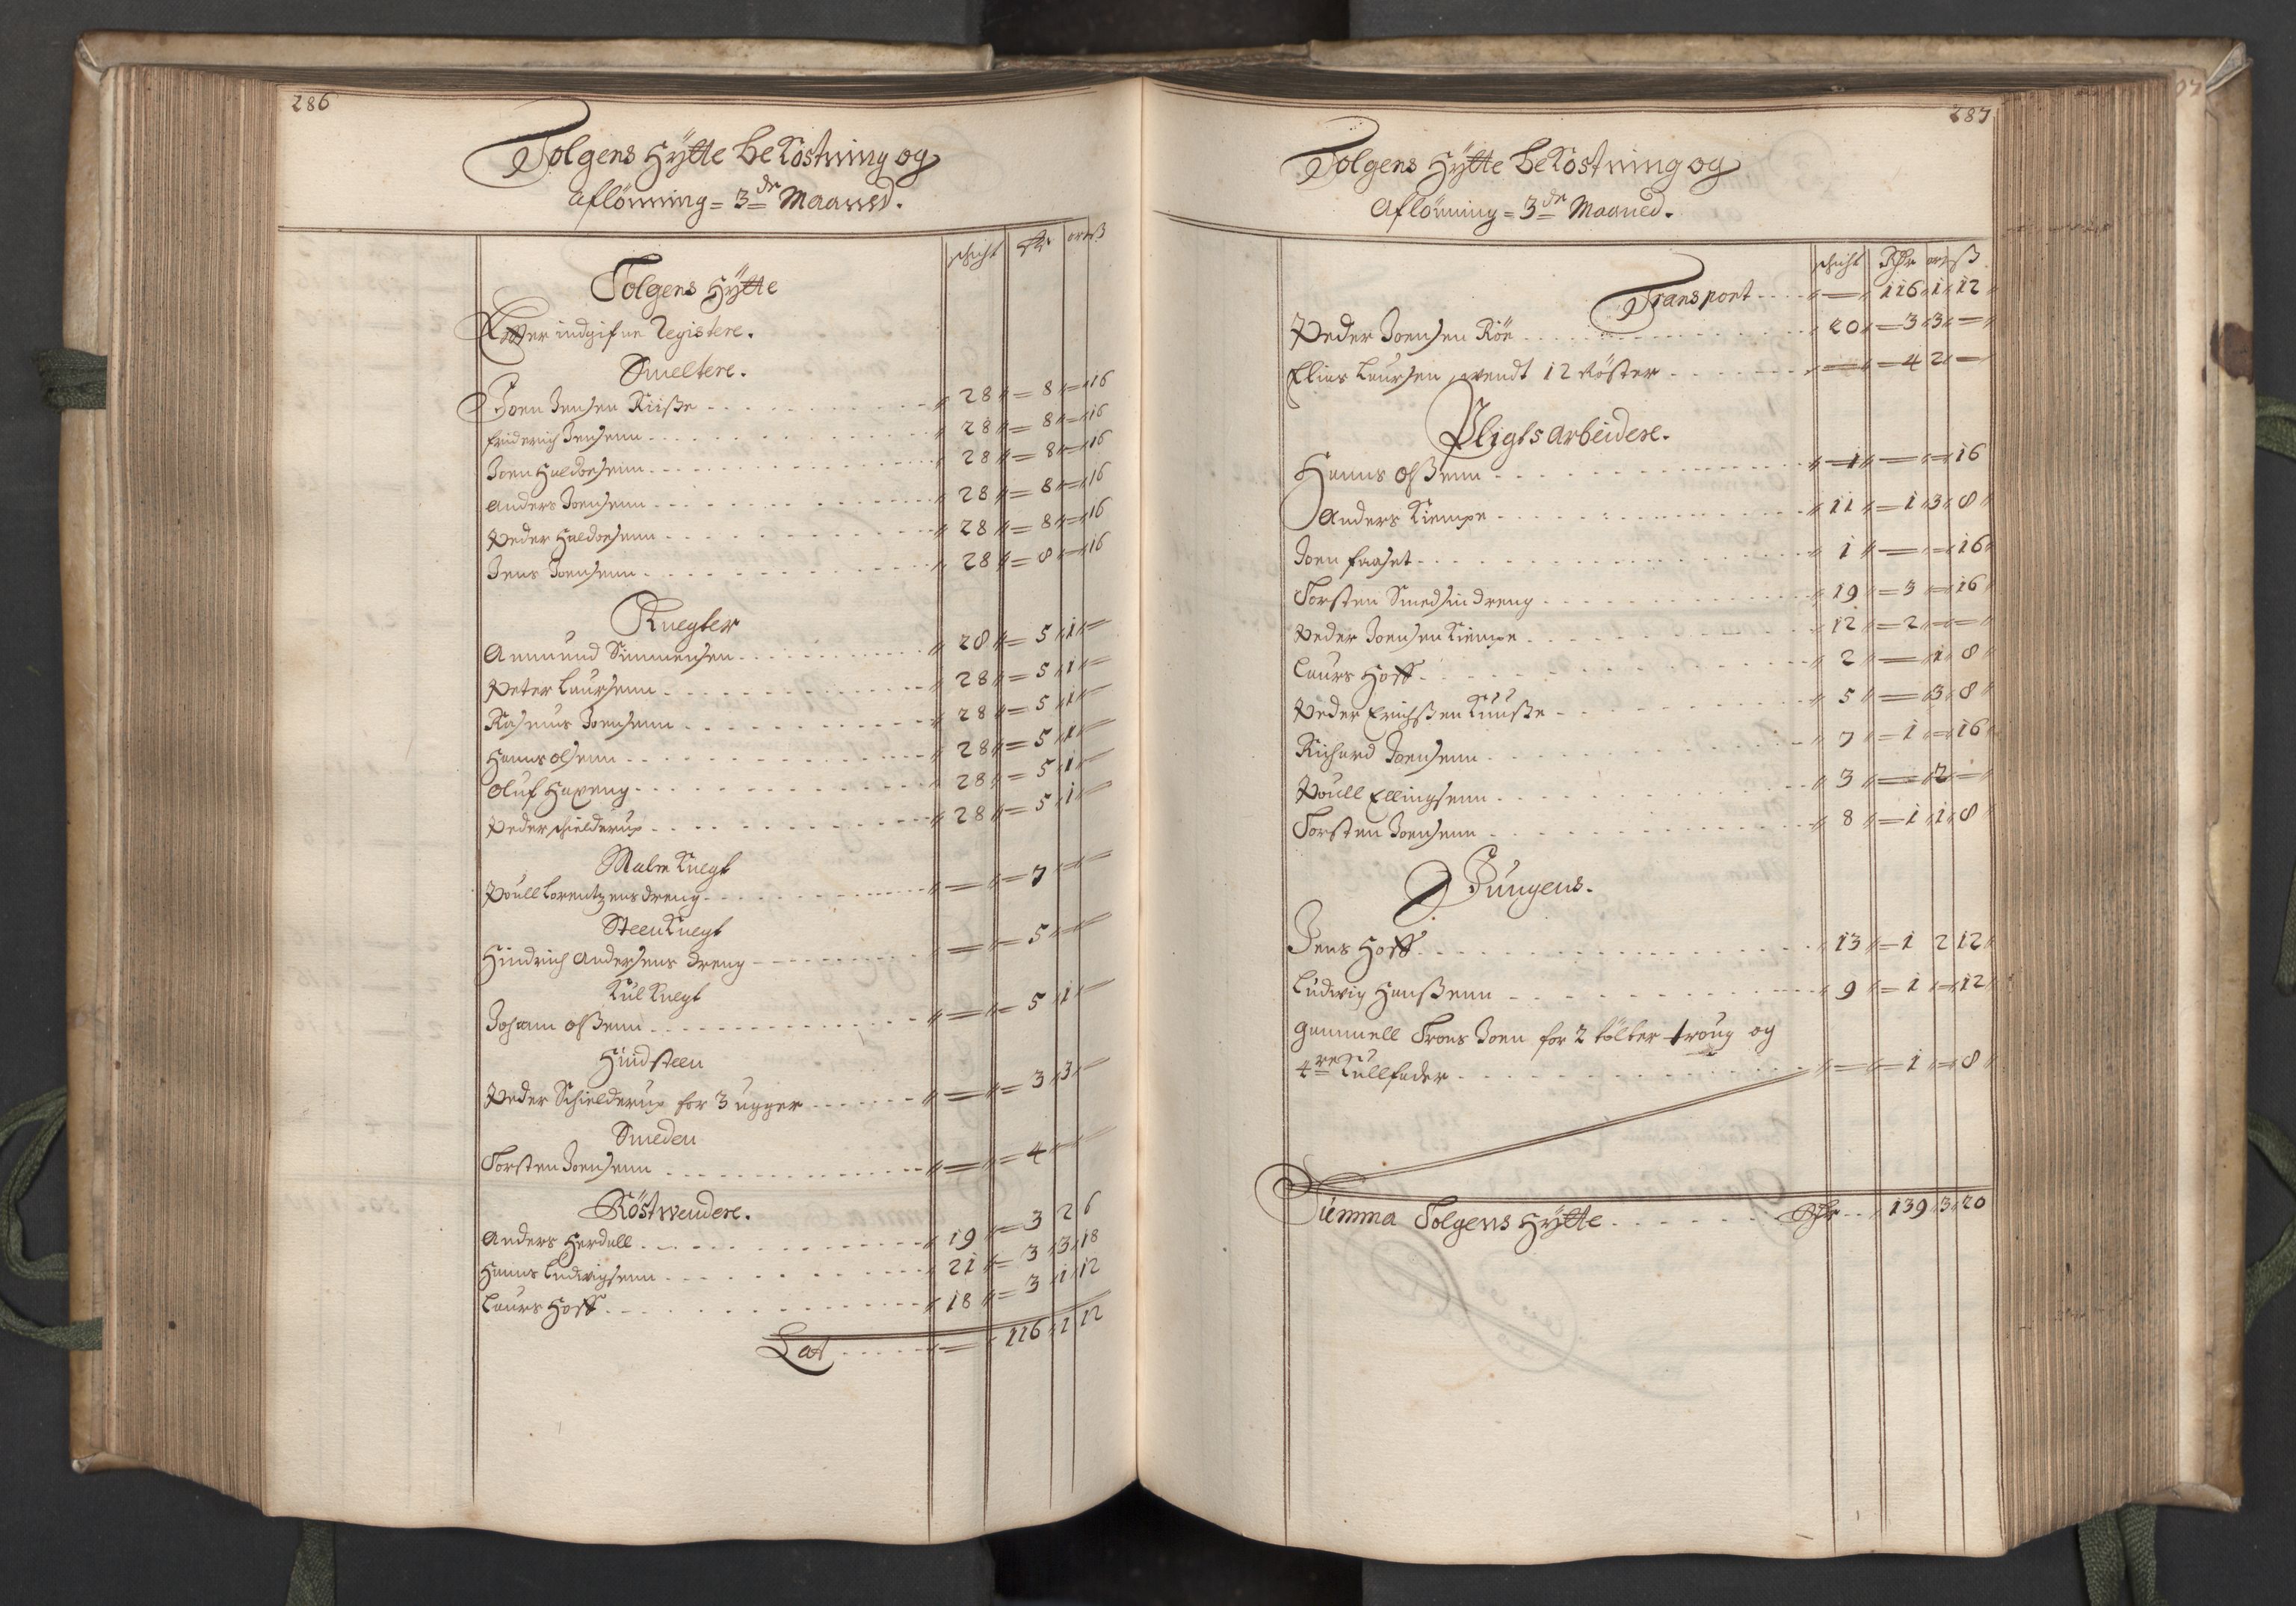 286
Tolgens Hÿtte beKostning og
Aflönning = 3de Maaned.
schicht Rdr ort ß
Tolgens Hÿtte
Efter indgifne Registere.
Smeltere.
Joen Jensen Riiße 28 8 — 16
Friderich Jensenn 28 8 — 16
Joen Haldorsenn 28 8 — 16
Anders Joensenn 28 8 — 16
Peder Haldorsenn 28 8 — 16
Jens Joensenn 28 8 — 16
Knegter
Ammund Simmensen 28 5 1 —
Peter Laursenn 28 5 1 —
Rasmus Joensenn 28 5 1 —
Hanns Olsenn 28 5 1 —
Oluf Haxeng 28 5 1 —
Peder Schielderup 28 5 1 —
Malm Knegt
Poull Lorentzens dreng — 7 — —
Steen Knegt
Hindrich Andersens dreng — 5 — —
Kul Knegt
Johann Olßenn — 5 1 —
Hüidsteen
Peder Schielderup for 3 ugger — 3 3 —
Smeden
Torsten Joensenn — 4 — —
Röstwendere.
Anders Herdall 19 3 2 6
Hanns Ludwigsenn 21 3 3 18
Laurs Hoff 18 3 1 12
Lat — 116 1 12
287
Tolgens Hÿtte beKostning og
Aflönning = 3de Maaned.
schicht Rdr ort ß
Transport — 116 1 12
Peder Joensen Röe 20 3 3 —
Elias Laursen, wendt 12 Röster — 4 2 —
Pligtsarbeidere.
Hanns Olßenn 1 — — 16
Anders Kiempe 11 1 3 8
Joen Faaset 1 — — 16
Torsten Smedsin dreng 19 3 — 16
Peder Joensen Kiempe 12 2 — —
Laurs Hoff 2 — 1 8
Peder Erichßen Küüße 5 — 3 8
Richard Joensenn 7 1 — 16
Poull Ellingsenn 3 — 2 —
Torsten Joensenn 8 1 1 8
Püngens.
Jens Hoff 13 1 2 12
Ludwig Hanßenn 9 1 — 12
Gammell Trons Joen for 2 tölter troug og
4re Kullfader — 1 — 8
Summa Tolgens Hÿtte Rdr 139 3 20